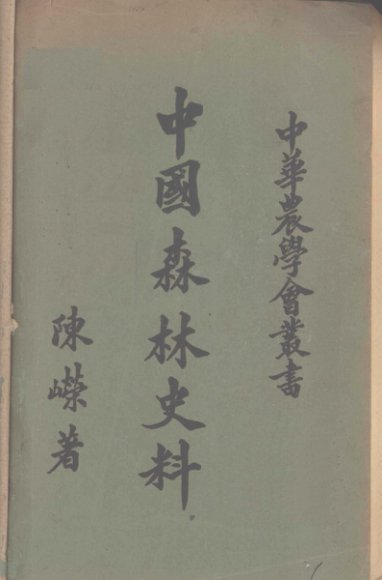 中華農學會叢書
中國森林史料
陳嶸著